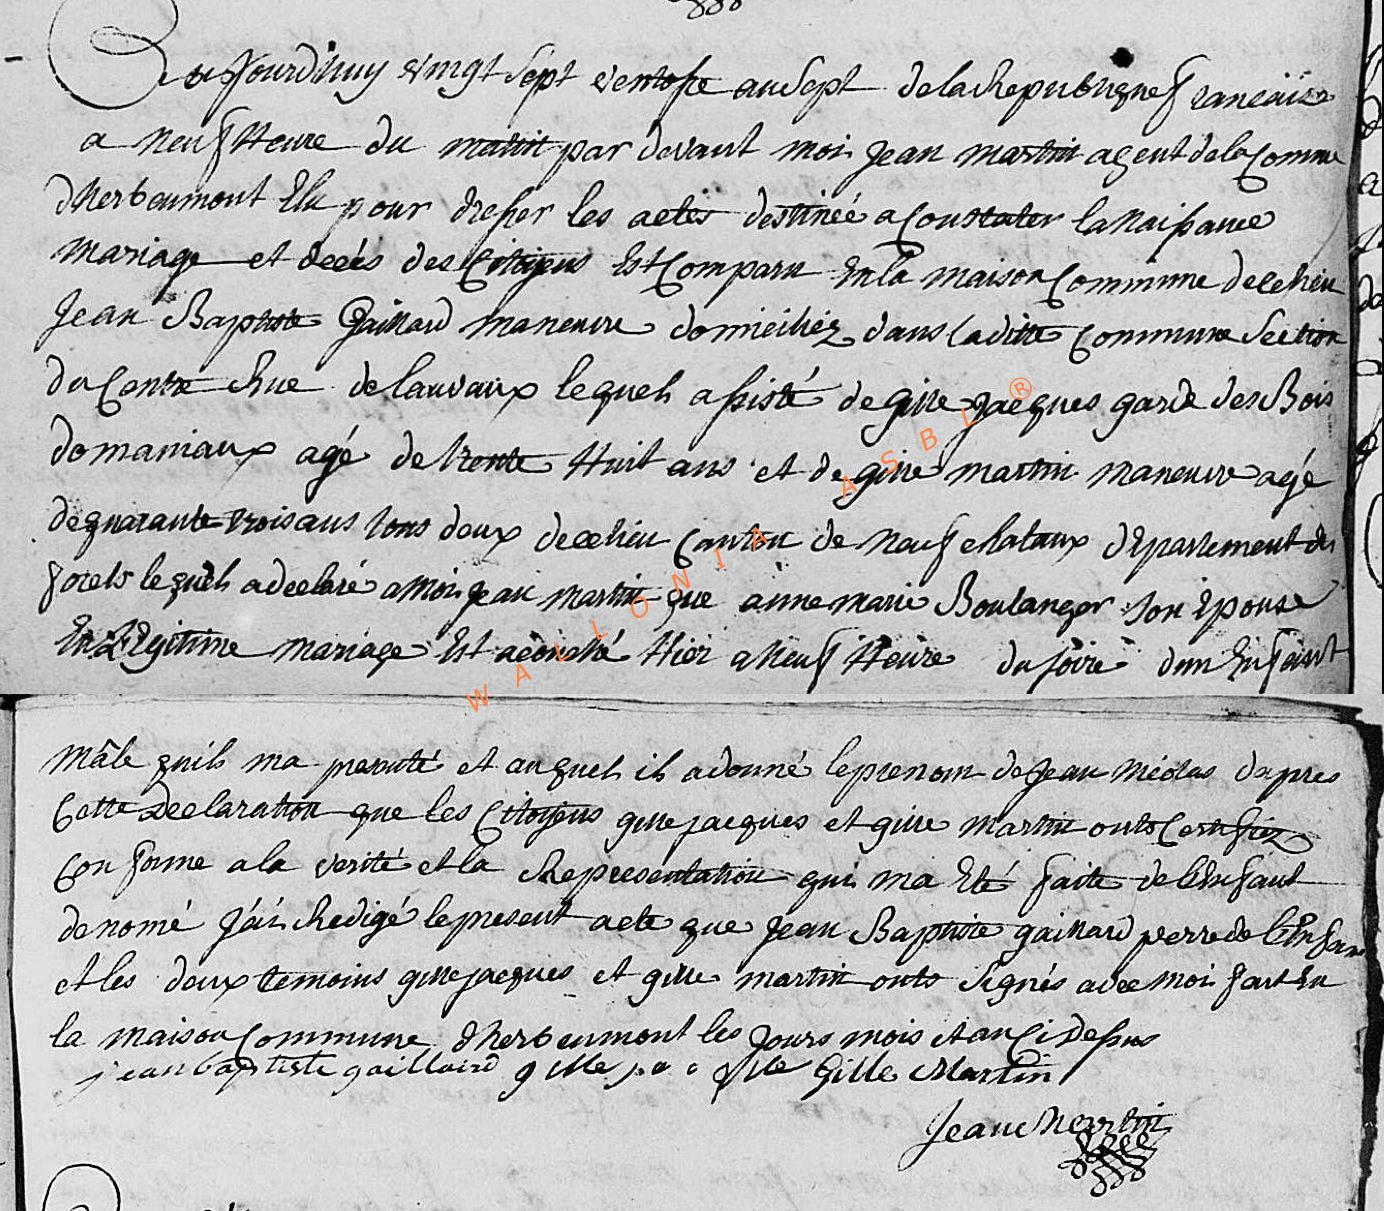 Aujourdhuy vingt sept ventose an Sept de la Republique francaise
a neuf Heure du matin par devant moi Jean martin agent de la Commune
dherbeumont Elu pour dresser les actes destinée a Constater la Naissance
Mariage et decés des Citoyens Est Comparu En la maison Commune de ce lieu
Jean Baptiste Gaillard maneuvre domiciliéz dans laditte Commune Section
du Centre Rue de lauvaux lequel assisté de gille Jacques garde des Bois
domaniaux agé de trente Huit ans et de gille martin maneuvre agé
de quarante trois ans tous deux de ce lieu Canton de neufchataux département des
forets lequels a declaré a Moi jean martin que anne marie Boulanger son Epouse
En Légitime mariage Est acouché Hier a Neuf Heure du soire dun Enfant
WALLONIA ASBL ®
Mâle quils ma presenté et auquel il a donné le prenom de Jean nicolas dapres
Cette Declaration que les Citoyens gille jacques et gille martin onts Certifiéz
Conforme a la verité et la Representation qui ma Eté faite de lEnfant
denomé J'ai Redigé le present acte que Jean Baptiste gaillard perre de lEnfant
et les deux temoins gille jacques et gille martin onts signés avec moi fait En
la maison Commune dherbeumont les Jours mois et an Ci Dessus
jean baptiste gaillard gille Gille Martin
Jean Martin